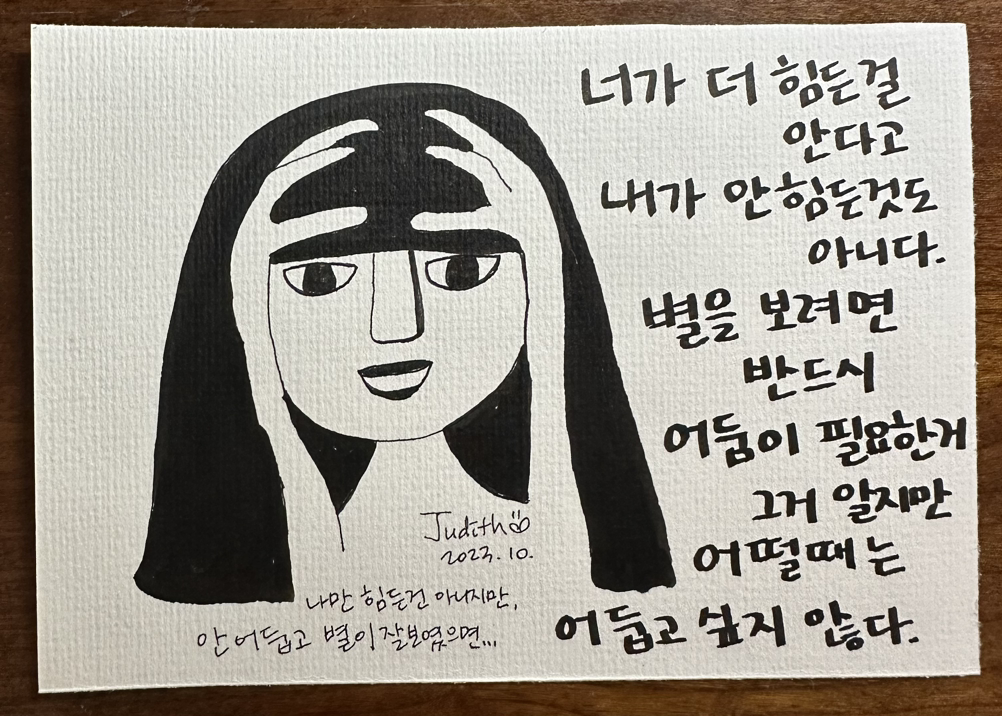 너가 더 힘든걸
안다고
내가 안힘든것도
아니다.
별을 보려면
반드시
어둠이 필요한거
그거 알지만
어떨때는
어둡고 싶지 않다.
Judith
2023.10.
나만 힘든건 아니지만,
안 어둡고 별이 잘보였으면...